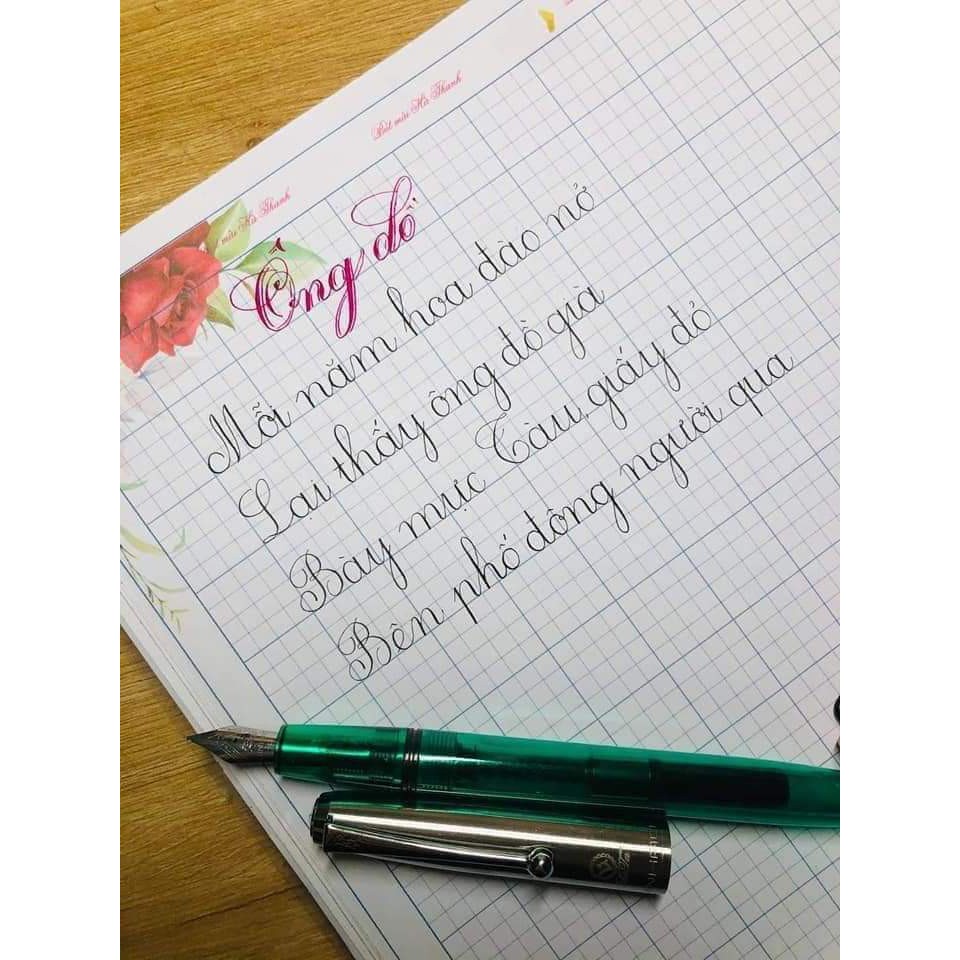 Bút mài Hà Thanh
mài Hà Thanh
Ông đồ
Mỗi năm hoa đào nở
Lại thấy ông đồ già
Bày mực Tàu, giấy đỏ
Bên phố đông người qua